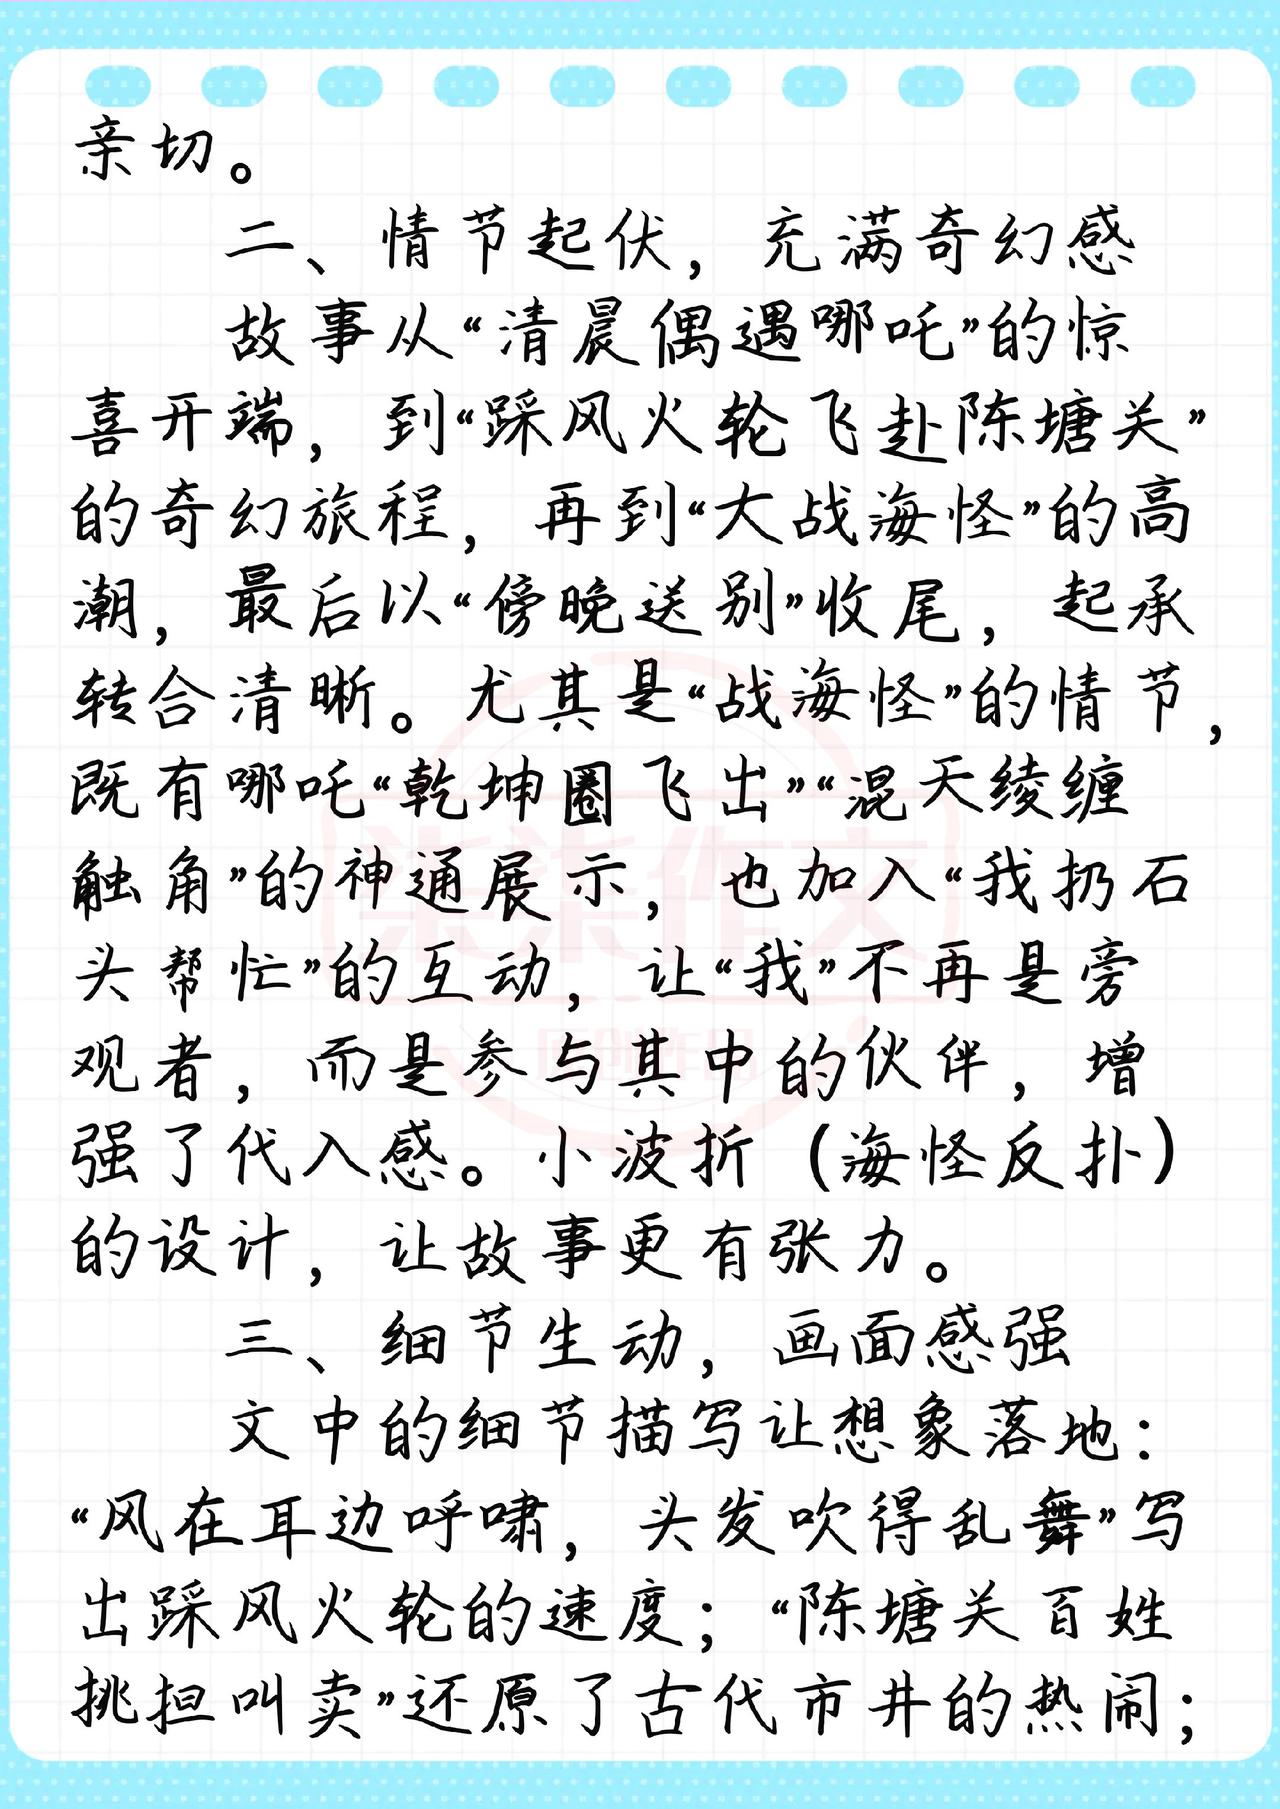 亲切。
二、情节起伏，充满奇幻感
故事从“清晨偶遇哪吒”的惊
喜开端，到“踩风火轮飞赴陈塘关”
的奇幻旅程，再到“大战海怪”的高
潮，最后以“傍晚送别”收尾，起承
转合清晰。尤其是“战海怪”的情节，
既有哪吒“乾坤圈飞出”“混天绫缠
触角”的神通展示，也加入“我扔石
头帮忙”的互动，让“我”不再是旁
观者，而是参与其中的伙伴，增
强了代入感。小波折（海怪反扑）
的设计，让故事更有张力。
三、细节生动，画面感强
文中的细节描写让想象落地：
“风在耳边呼啸，头发吹得乱舞”写
出踩风火轮的速度；“陈塘关百姓
挑担叫卖”还原了古代市井的热闹；
柒柒作文
原创作品